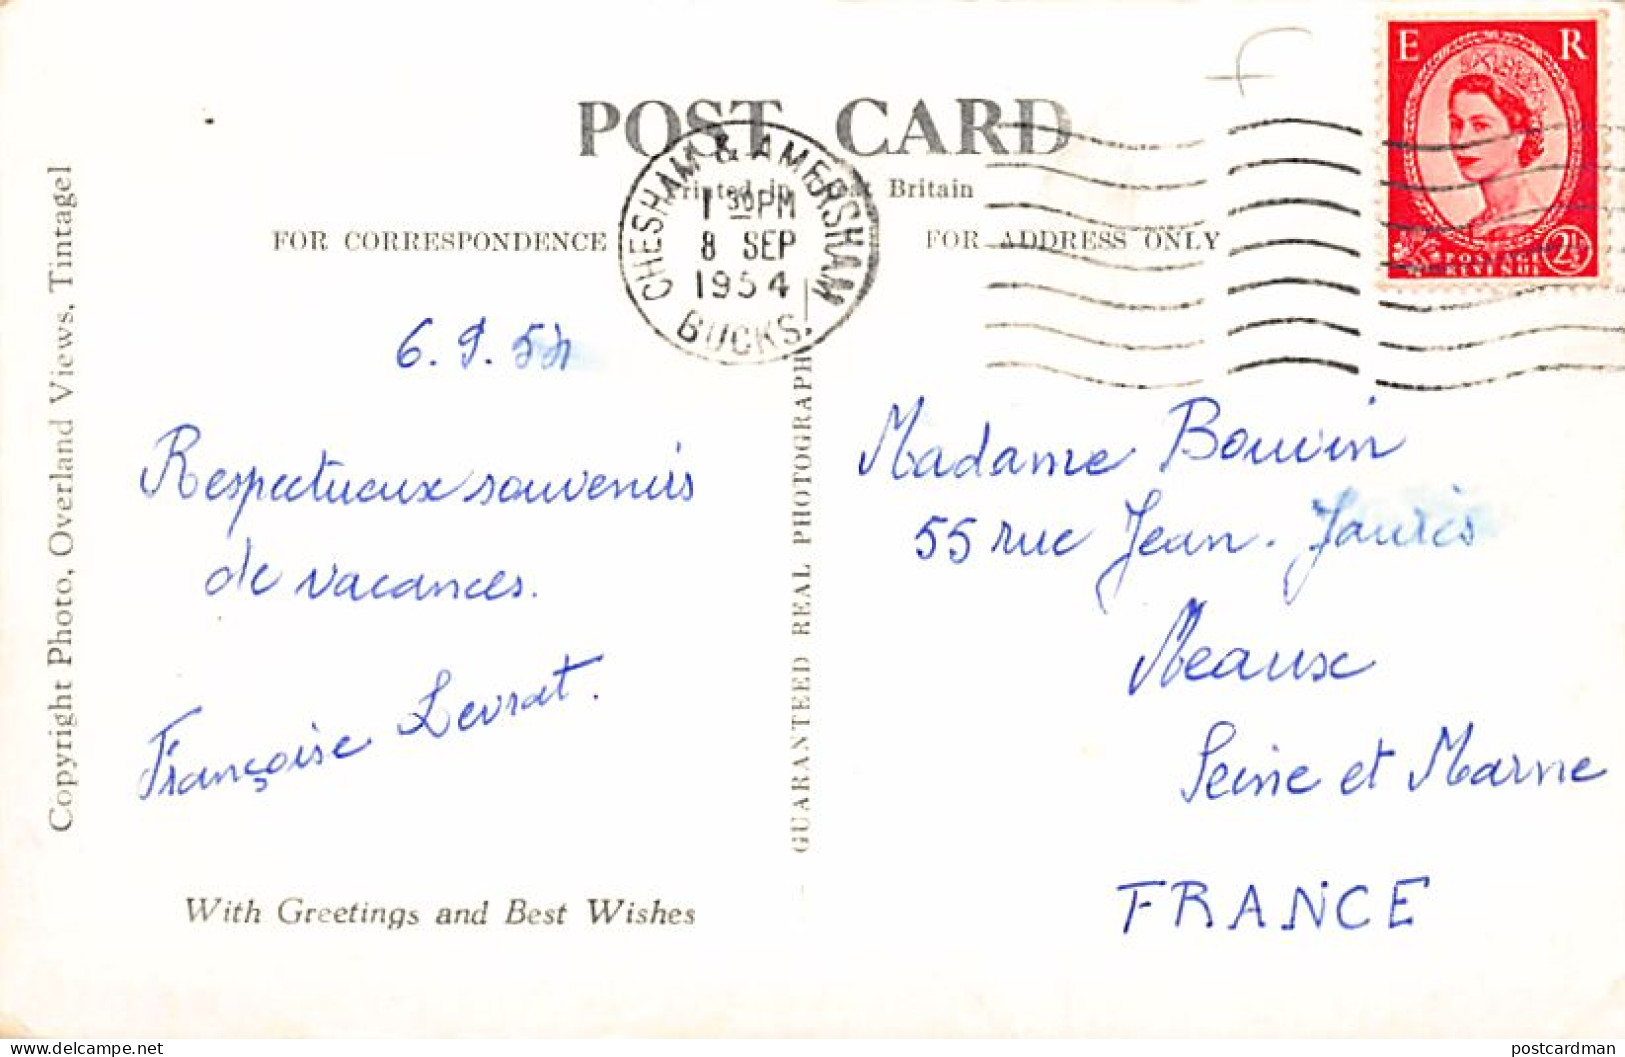 E R
POST CARD
Printed in Great Britain
FOR CORRESPONDENCE
FOR ADDRESS ONLY
CHESHAM & AMERSHAM
1 30 PM
8 SEP
1954
BUCKS.
POSTAGE
REVENUE
2½
Copyright Photo, Overland Views, Tintagel
GUARANTEED REAL PHOTOGRAPH
6.9.54
Respectueux souvenirs
de vacances.
Françoise Levrat.
With Greetings and Best Wishes
Madame Bouvin
55 rue Jean-Jaurès
Meaux
Seine et Marne
FRANCE
https://www.delcampe.net
postcardman